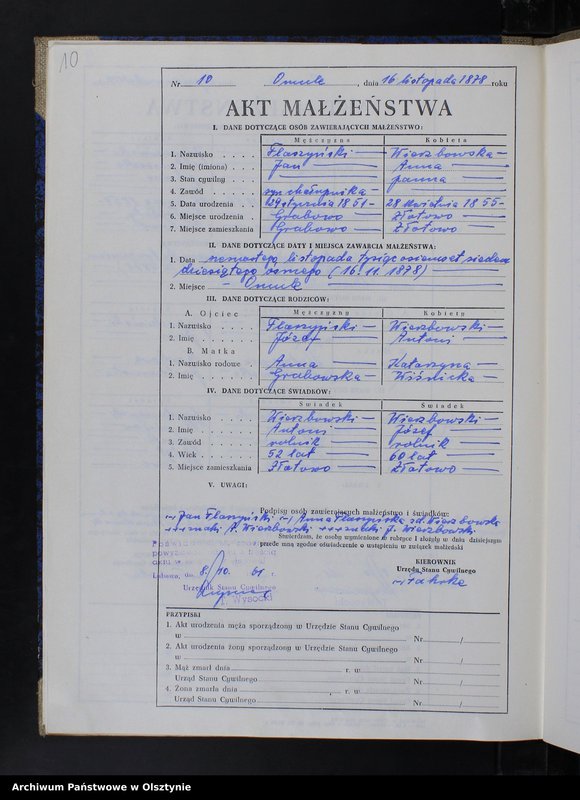 10
Nr 10 Omule, dnia 16 listopada 1878 roku
AKT MAŁŻEŃSTWA
I. DANE DOTYCZĄCE OSÓB ZAWIERAJĄCYCH MAŁŻEŃSTWO:
Mężczyzna Kobieta
1. Nazwisko . . . . Flaszyński Wierzbowska
2. Imię (imiona) . . . Jan Anna
3. Stan cywilny . . . panna
4. Zawód . . . . . syn chałupnika
5. Data urodzenia . . 29 stycznia 1851 28 kwietnia 1855
6. Miejsce urodzenia . Grabowo Złotowo
7. Miejsce zamieszkania Grabowo Złotowo
II. DANE DOTYCZĄCE DATY I MIEJSCA ZAWARCIA MAŁŻEŃSTWA:
1. Data listopada tysiąc osiemset siedem
dziesiątego ósmego (16.11.1878)
2. Miejsce Omule
III. DANE DOTYCZĄCE RODZICÓW:
Mężczyzny Kobiety
A. Ojciec
1. Nazwisko . . . . Flaszyński Wierzbowski
2. Imię . . . . . . Józef Antoni
B. Matka
1. Nazwisko rodowe . Anna Katarzyna
2. Imię . . . . . . Grabowska Wiśnicka
IV. DANE DOTYCZĄCE ŚWIADKÓW:
Świadek Świadek
1. Nazwisko . . . . Wierzbowski Wierzbowski
2. Imię . . . . . . Antoni Józef
3. Zawód . . . . . rolnik rolnik
4. Wiek . . . . . . 52 lat 60 lat
5. Miejsce zamieszkania Złotowo Złotowo
V. UWAGI:
Podpisy osób zawierających małżeństwo i świadków:
-/ Jan Flaszyński -/ Anna Flaszyńska zd. Wierzbowska
+++ znaki A. Wierzbowski +++ znaki J. Wierzbowski
Stwierdzam, że osoby wymienione w rubryce I złożyły w dniu dzisiejszym
przede mną zgodne oświadczenie o wstąpieniu w związek małżeński
KIEROWNIK
Urzędu Stanu Cywilnego
Lubawa, dn. 8/10. 61 r.
Urzędnik Stanu Cywilnego
Wysocki
PRZYPISKI
1. Akt urodzenia męża sporządzony w Urzędzie Stanu Cywilnego
w Nr /
2. Akt urodzenia żony sporządzony w Urzędzie Stanu Cywilnego
w Nr /
3. Mąż zmarł dnia r. w
Urząd Stanu Cywilnego Nr /
4. Żona zmarła dnia , r. w
Urząd Stanu Cywilnego Nr /
Archiwum Państwowe w Olsztynie